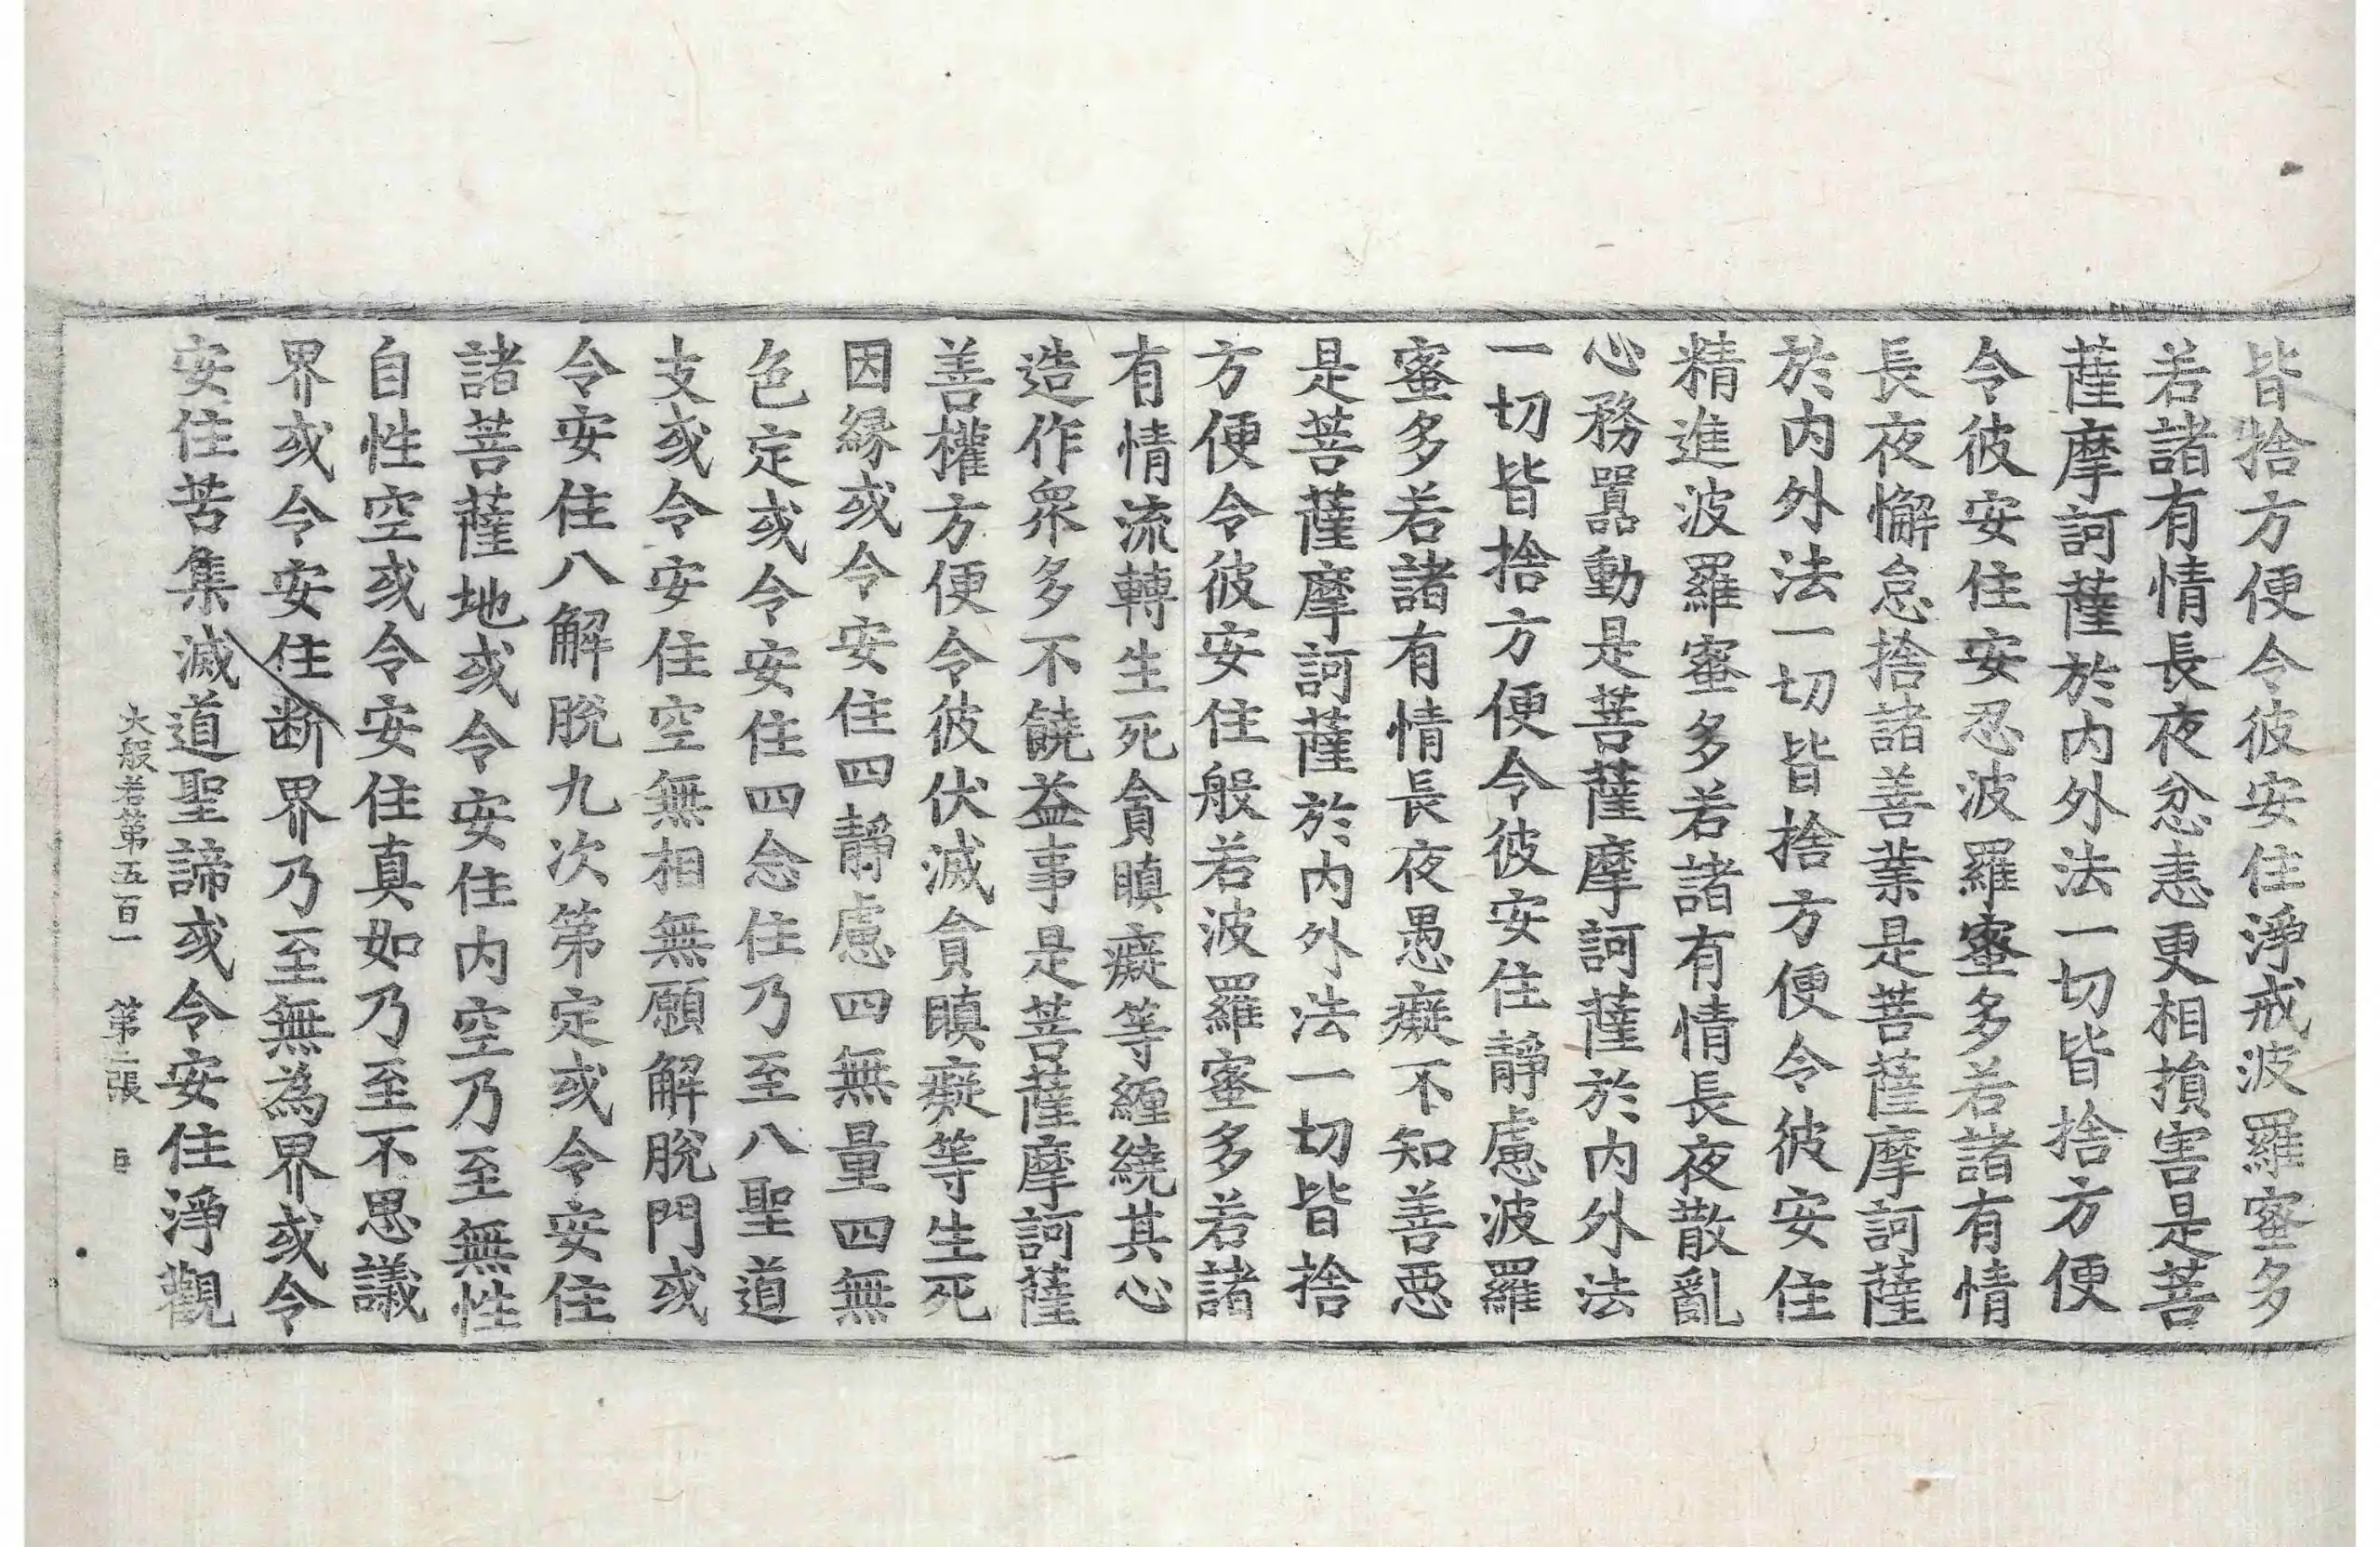 皆捨方便令彼安住淨戒波羅蜜多
若諸有情長夜忿恚更相損害是菩
薩摩訶薩於內外法一切皆捨方便
令彼安住安忍波羅蜜多若諸有情
長夜懈怠捨諸善業是菩薩摩訶薩
於內外法一切皆捨方便令彼安住
精進波羅蜜多若諸有情長夜散亂
心務囂動是菩薩摩訶薩於內外法
一切皆捨方便令彼安住靜慮波羅
蜜多若諸有情長夜愚癡不知善惡
是菩薩摩訶薩於內外法一切皆捨
方便令彼安住般若波羅蜜多若諸
有情流轉生死貪瞋癡等纏繞其心
造作衆多不饒益事是菩薩摩訶薩
善權方便令彼伏滅貪瞋癡等生死
因緣或令安住四靜慮四無量四無
色定或令安住四念住乃至八聖道
支或令安住空無相無願解脫門或
令安住八解脫九次第定或令安住
諸菩薩地或令安住內空乃至無性
自性空或令安住真如乃至不思議
界或令安住斷界乃至無為界或令
安住苦集滅道聖諦或令安住淨觀
大般若第五百一 第二張